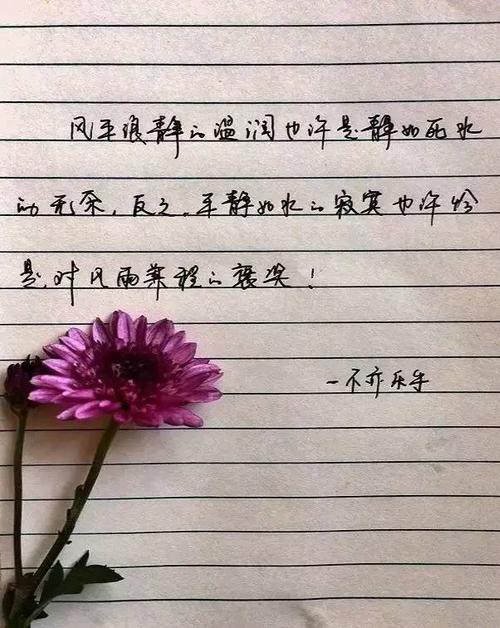 风平浪静的温润也许是静如死水
的无奈，反之，平静如水的寂寞也许恰
是对风雨兼程的褒奖！
一不亦乐乎